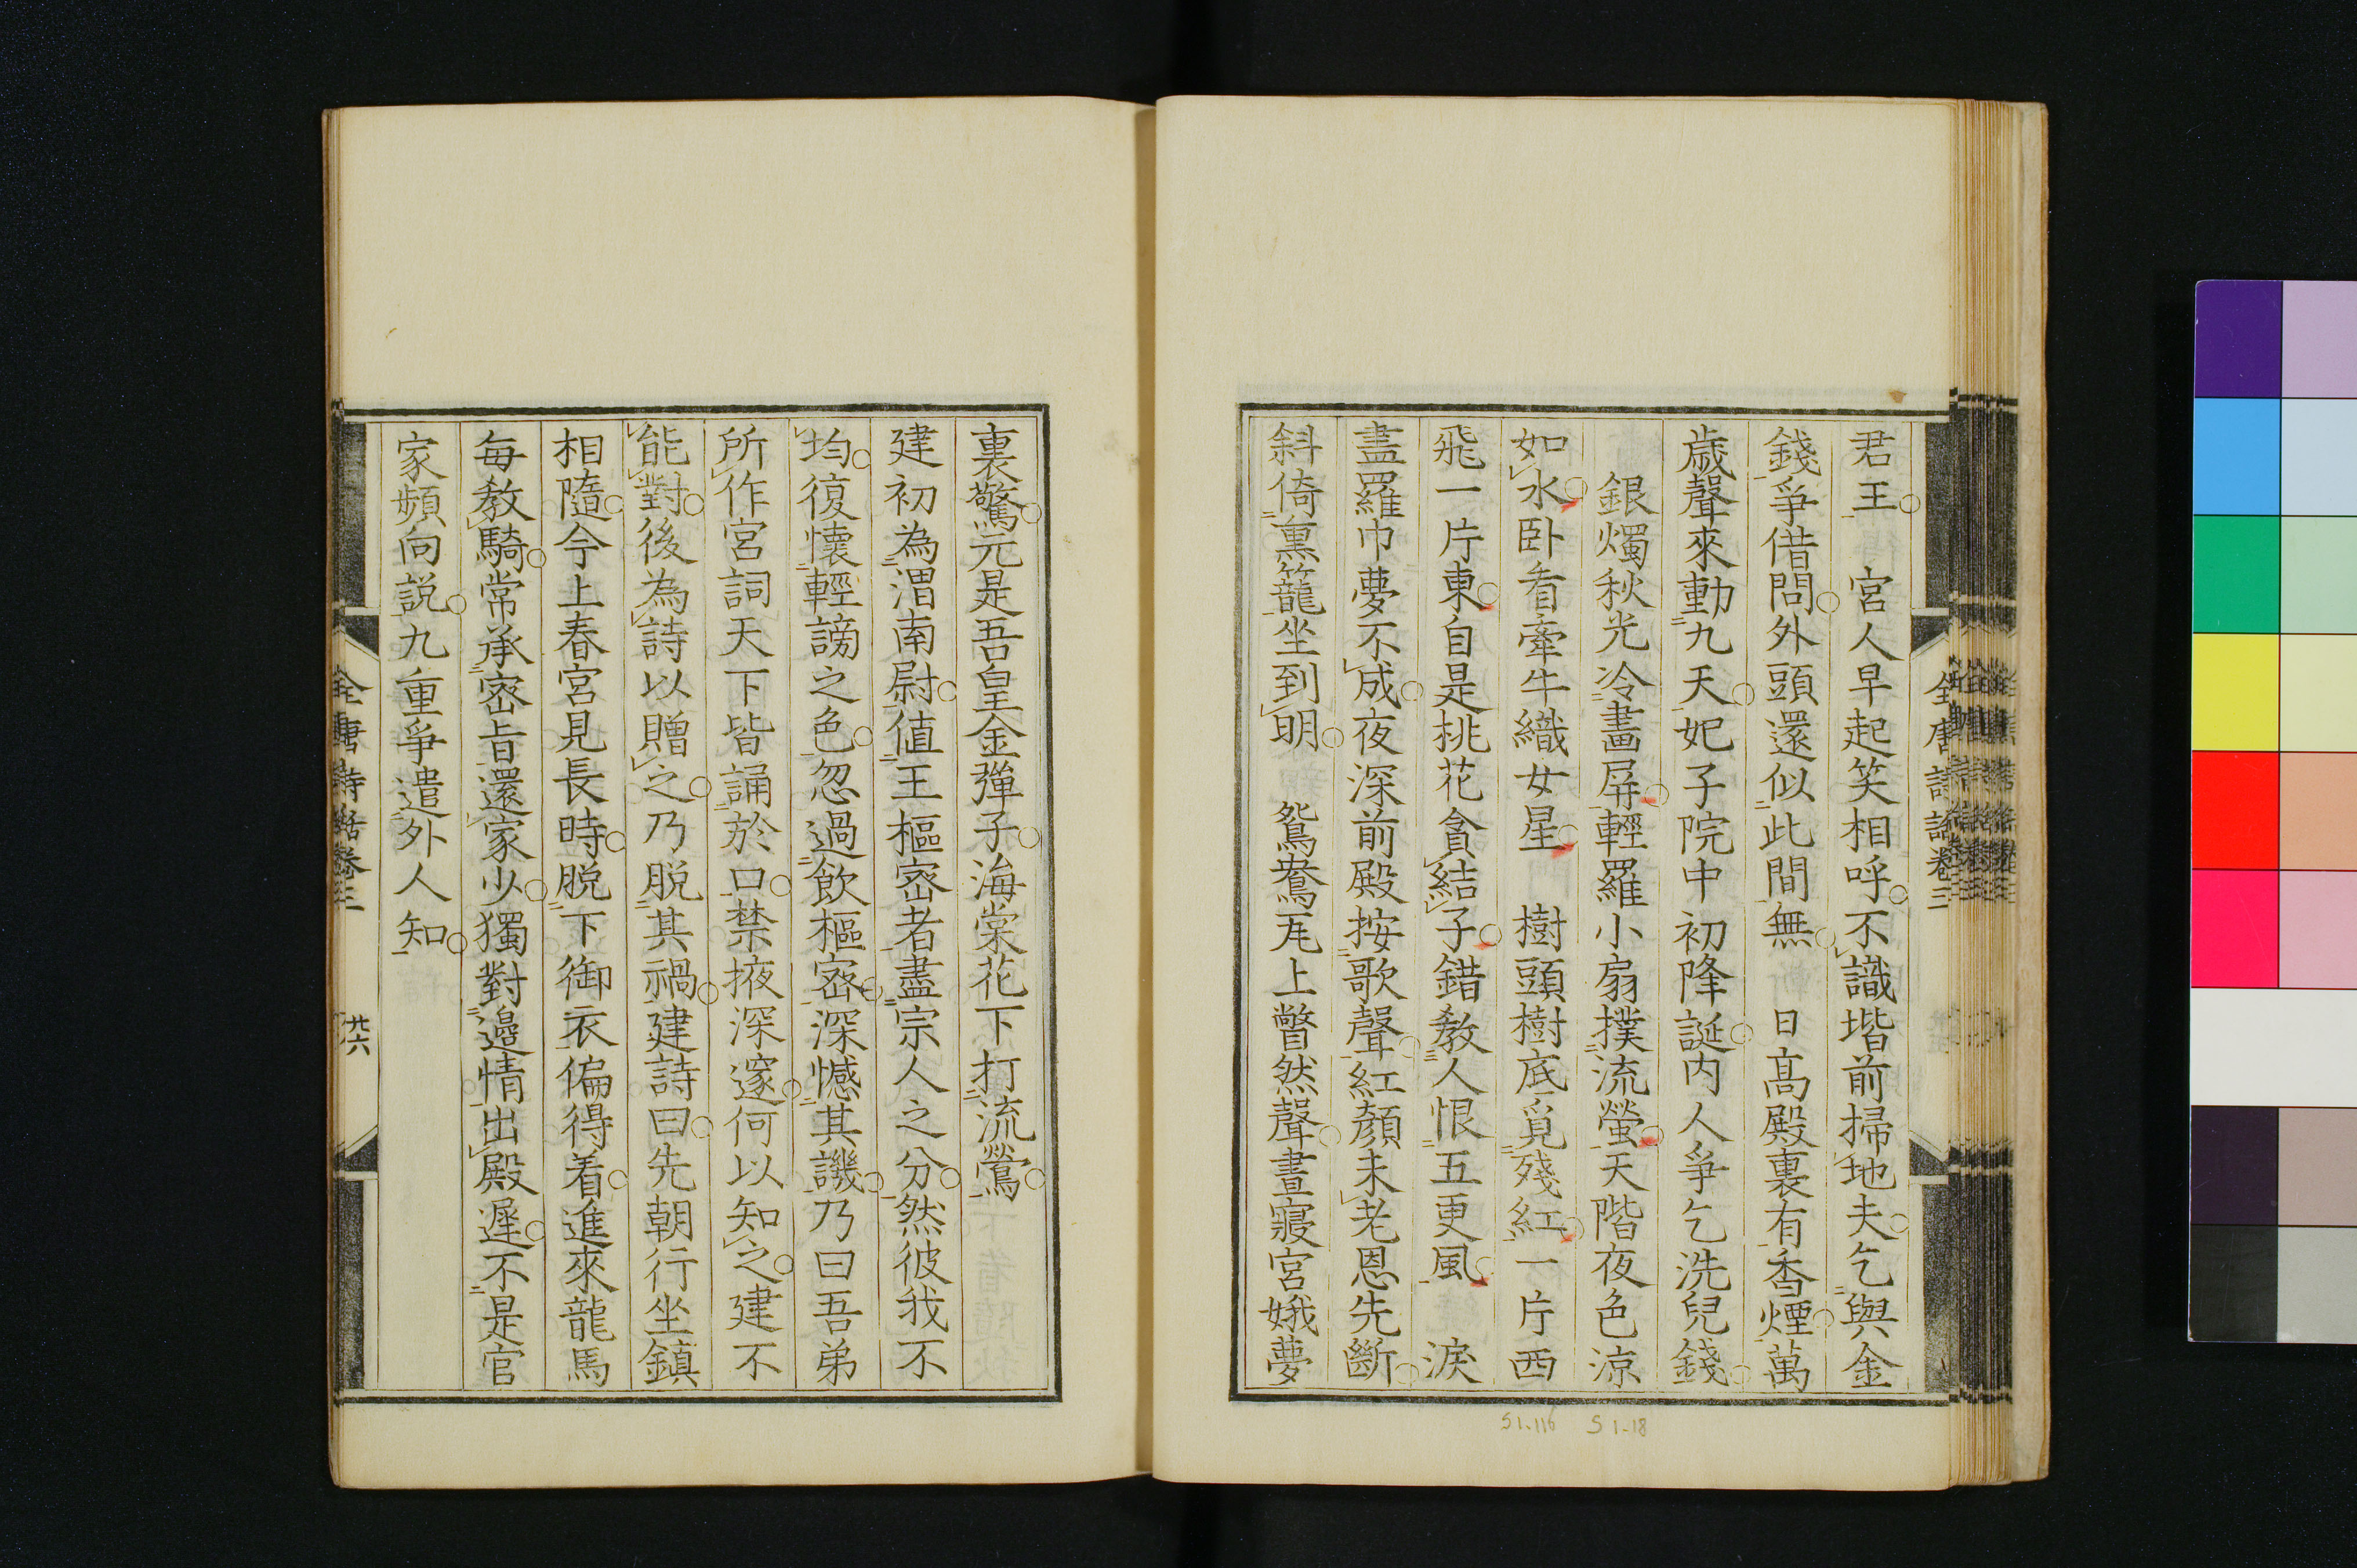 君王　宮人早起笑相呼不識堦前掃地夫乞與金
錢爭借問外頭還似此間無　日髙殿裏有香煙萬
歳聲來動九天妃子院中初降誕内人爭乞洗兒錢
銀燭秋光冷畫屏輕羅小扇撲流螢天階夜色涼
如水卧看牽牛織女星　樹頭樹底覓殘紅一片西
飛一片東自是桃花貪結子錯教人恨五更風　淚
盡羅巾夢不成夜深前殿按歌聲紅顏未老恩先斷
斜倚熏籠坐到明　鴛鴦瓦上瞥然聲晝寢宮娥夢
全唐詩話卷三
裏驚元是吾皇金彈子海棠花下打流鶯
建初為渭南尉值王樞宻者盡宗人之分然彼我不
均復懷輕謗之色忽過飲樞宻深憾其譏乃曰吾弟
所作宮詞天下皆誦於口禁掖深邃何以知之建不
能對後為詩以贈之乃脱其禍建詩曰先朝行坐鎮
相隨今上春宮見長時脱下御衣偏得着進來龍馬
每教騎常承宻旨還家少獨對邉情出殿遲不是官
家頻向説九重爭遣外人知
全唐詩話卷三　廿六
S1-116　S1-18